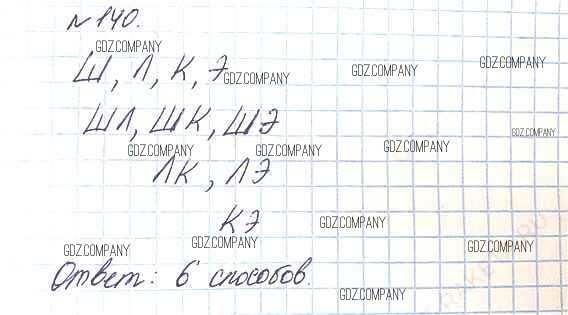 №140.
GDZ.COMPANY
Ш, Л, К, Э
GDZ.COMPANY GDZ.COMPANY GDZ.COMPANY
ШЛ, ШК, ШЭ
GDZ.COMPANY
GDZ.COMPANY GDZ.COMPANY GDZ.COMPANY
ЛК, ЛЭ
КЭ
GDZ.COMPANY
GDZ.COMPANY GDZ.COMPANY GDZ.COMPANY
Ответ: 6 способов.
GDZ.COMPANY